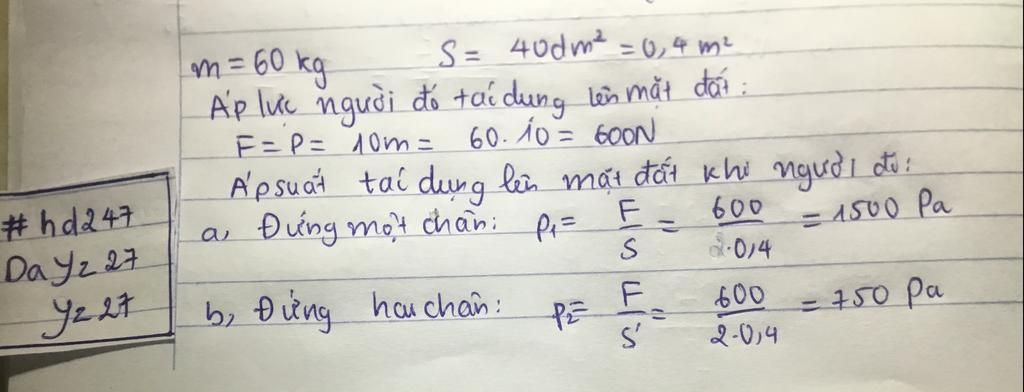 m = 60 kg S = 40dm² = 0,4 m²
Áp lực người đó tác dụng lên mặt đất:
F = P = 10m = 60.10 = 600N
Áp suất tác dụng lên mặt đất khi người đó:
a, Đứng một chân: p₁ = F/S = 600/2.0,4 = 1500 Pa
b, Đứng hai chân: p₂ = F/S' = 600/2.0,4 = 750 Pa
#hd247
Dayz27
yz27